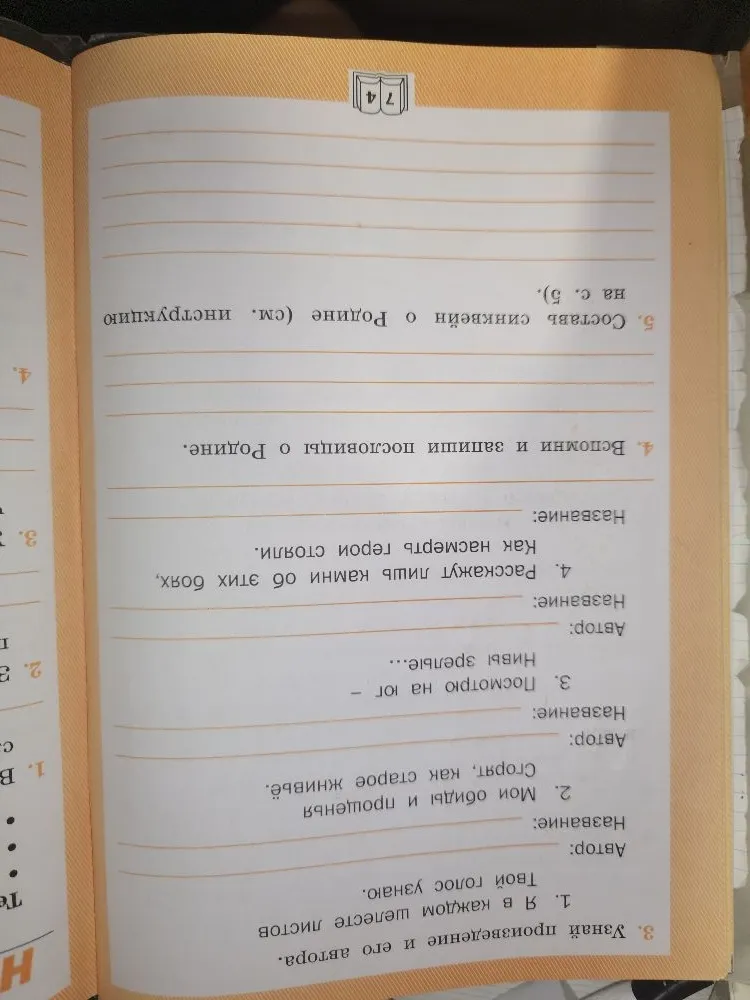 3. Узнай произведение и его автора.
1. Я в каждом шелесте листов
Твой голос узнаю.
Автор:
Название:
2. Мои обиды и прощенья
Сгорят, как старое жнивьё.
Автор:
Название:
3. Посмотрю на юг –
Нивы зрелые...
Автор:
Название:
4. Расскажут лишь камни об этих боях,
Как насмерть герои стояли.
Название:
4. Вспомни и запиши пословицы о Родине.
5. Составь синквейн о Родине (см. инструкцию
на с. 5).
74
Н
1. В
2. З
3.
4.